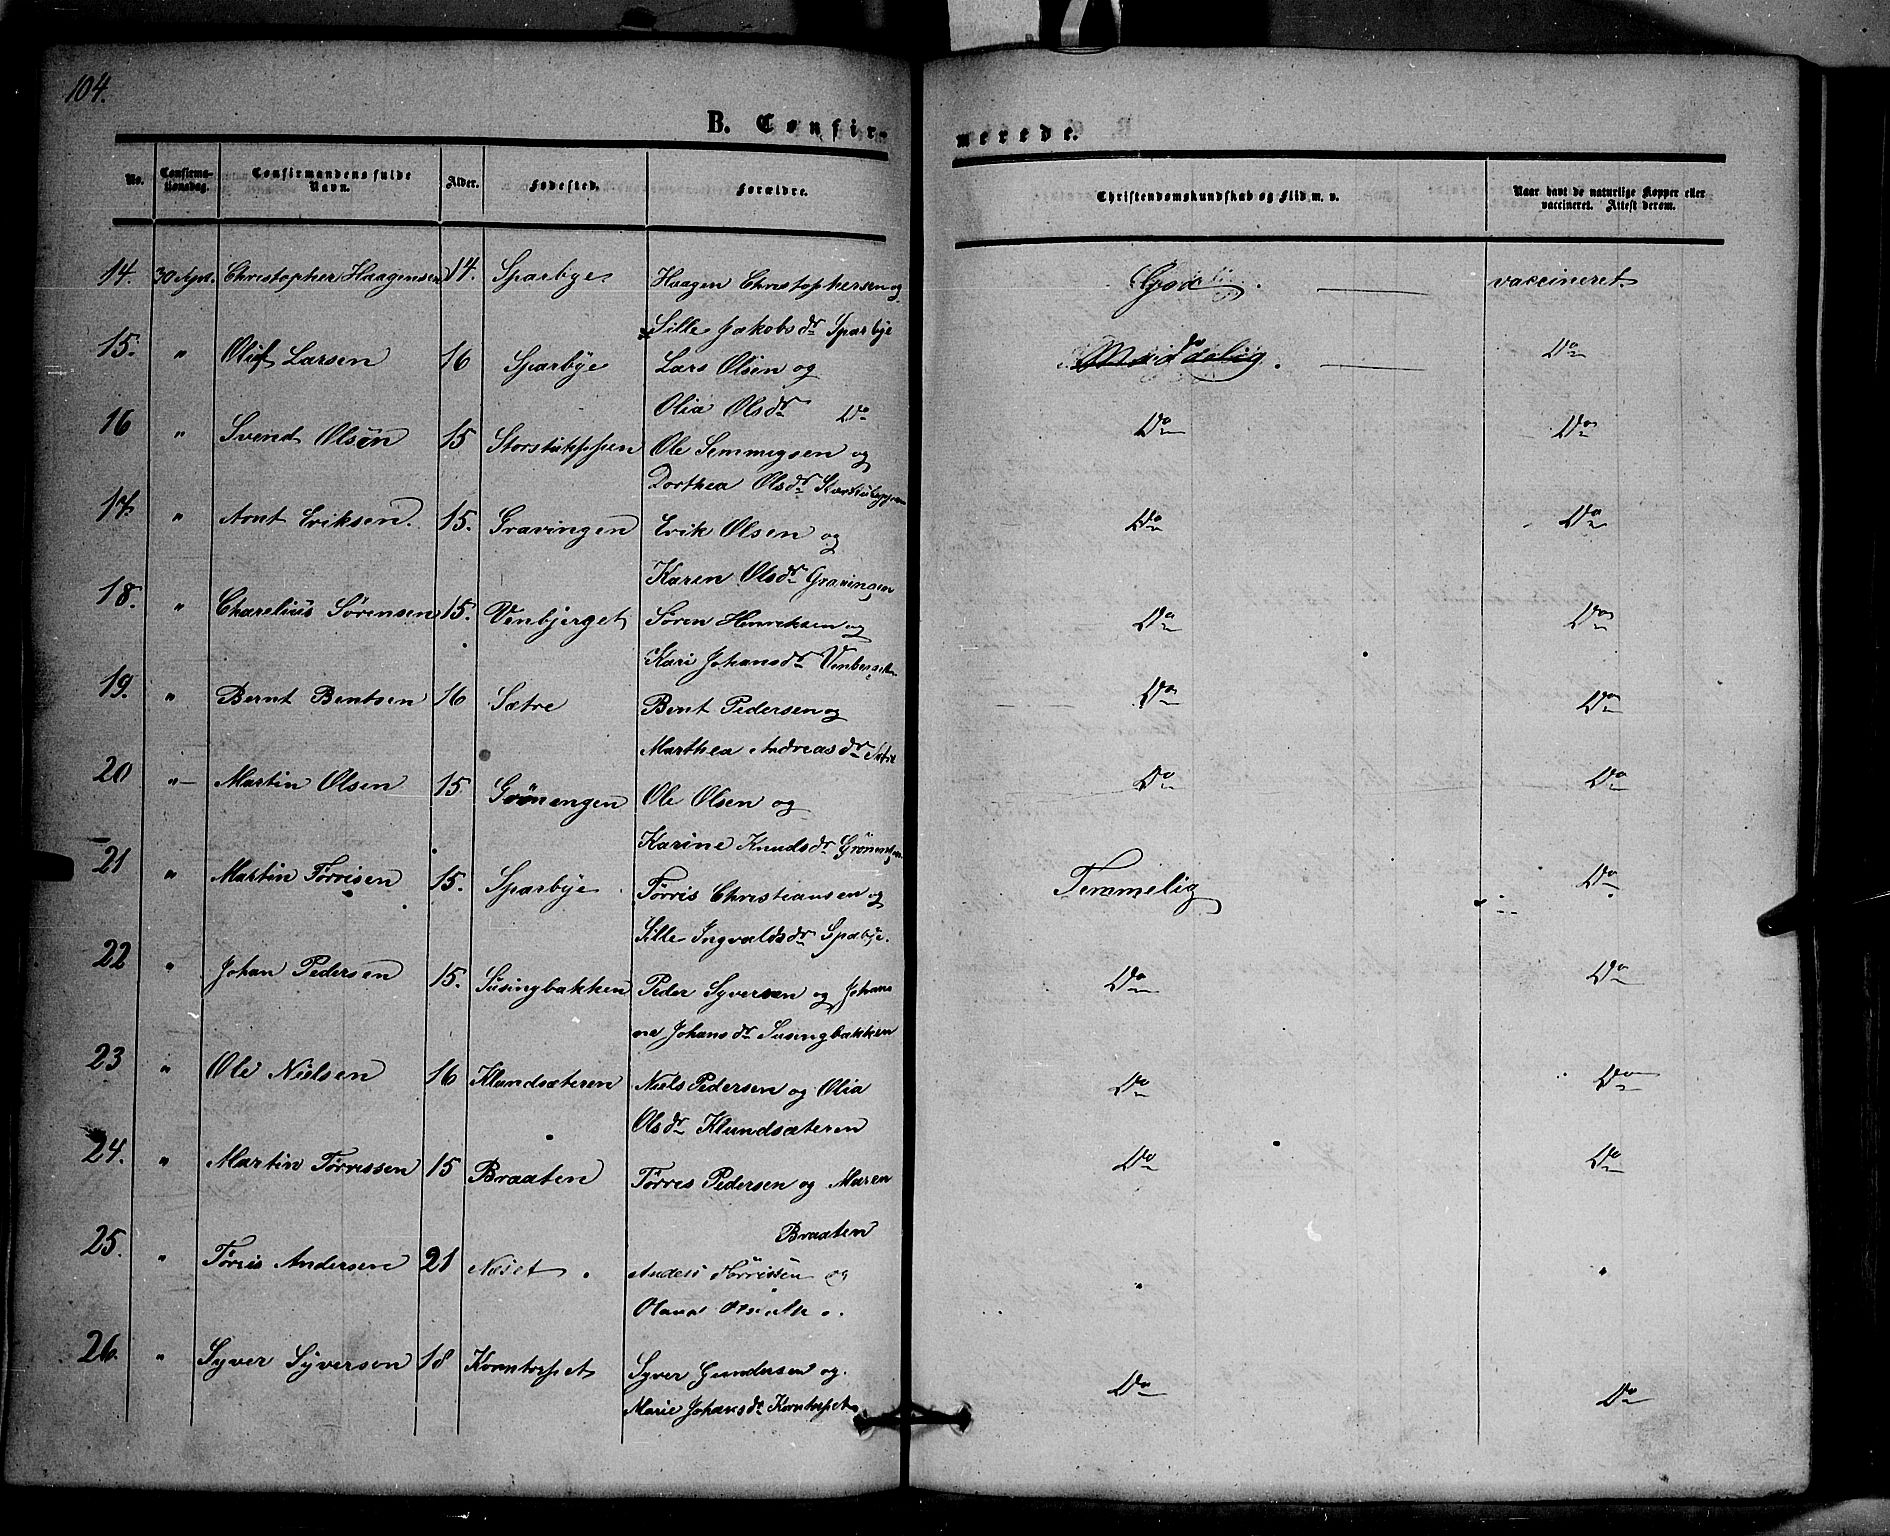 104.
B. Confirmerede.
No. Confirmationsdag. Confirmandens fulde Navn. Alder. Fødested. Forældre. Christendomskundskab og Flid m. v. Naar havt de naturlige Kopper eller vaccineret. Attest derom.
14. 30 Apr. Christopher Haagensen 14. Sparbye Haagen Christophersen og God. vaccineret.
Sille Jakobsdr Sparbye
15. " Olif Larsen 16 Sparbye Lars Olsen og Do Do
Olia Olsdr Do
16 " Svend Olsen 15 Storstuppen Ole Semmingsen og Do Do
Dorthea Olsdr
17. " Arnt Eriksen. 15. Gravingen Erik Olsen og Do Do
Karen Olsdr Gravingen
18. " Charelius Sørensen 15. Venbjerget Søren Henriksen og Do Do
Kari Johansdr
19. " Bernt Bentsen 16 Sætre Bent Pedersen og Do Do
Marthea Andreasdr Sætre
20 " Martin Olsen 15 Grönengen Ole Olsen og Do Do
Karine Knudsdr
21 " Martin Tørrisen 15. Sparbye Tørris Christiansen og Temmelig Do
Sille Ingvaldsdr Spabye.
22 " Johan Pedersen 15. Susingbakken Peder Syversen og Johane Do Do
ne Johansdr Susingbakken
23 " Ole Nielsen 16 Klundsæteren Niels Pedersen og Olia Do Do
Olsdr Klundsæteren
24. " Martin Tørrissen 15 Braaten Tørres Pedersen og Maren Do Do
Braaten
25. " Tørris Andersen 21 Næset. Anders Tørrissen og " "
26. " Syver Syversen 18 Korntorpet Syver Gundersen og Do Do
Marie Johansdr Korntorpet